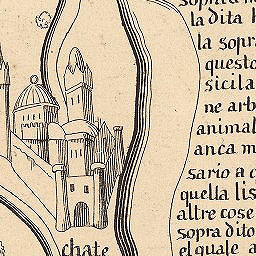 sopra
la dita
la sopra
questo
sicila
ne arb
animal
anca m
sario a q
quella lis
altre cose
sopra dito
el quale a
chate